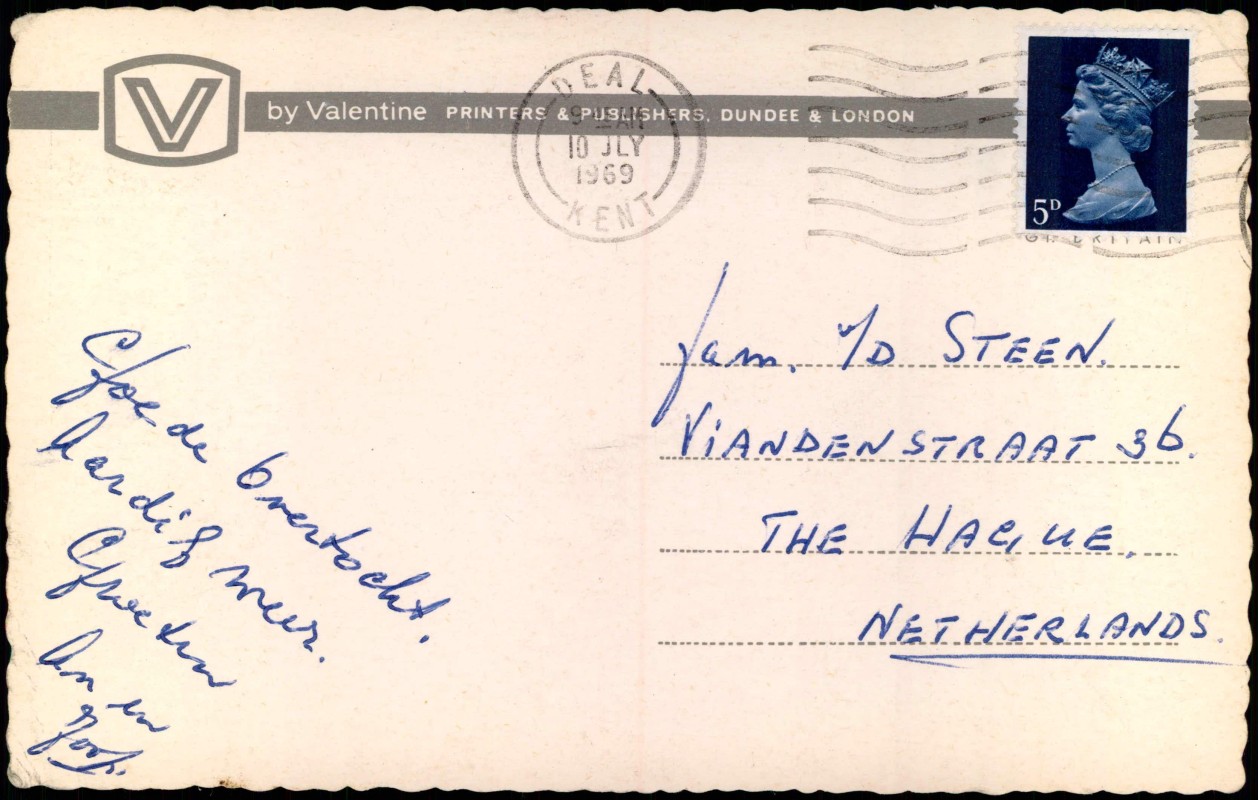 V by Valentine PRINTERS & PUBLISHERS, DUNDEE & LONDON
DEAL
10 JLY
1969
KENT
5D
Goede Overtocht.
Aardig weer.
Groeten
An en
Joop.
fam. v/d STEEN.
VIANDENSTRAAT 36.
THE HAGUE.
NETHERLANDS.